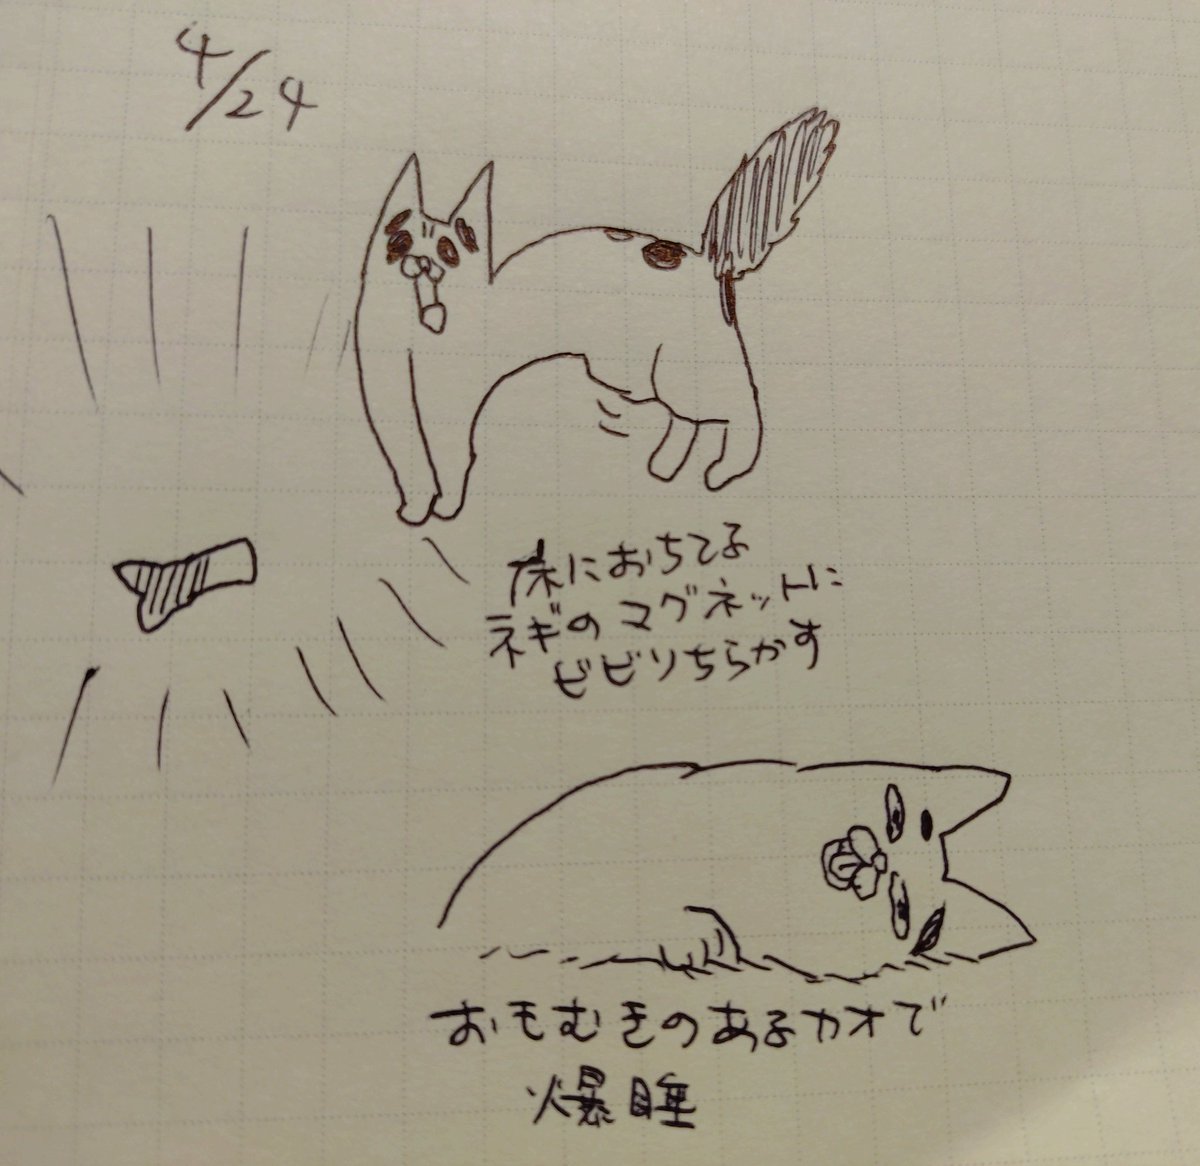 4/24
床におちてる
ネギのマグネットに
ビビりちらかす
おもむきのあるカオで
爆睡